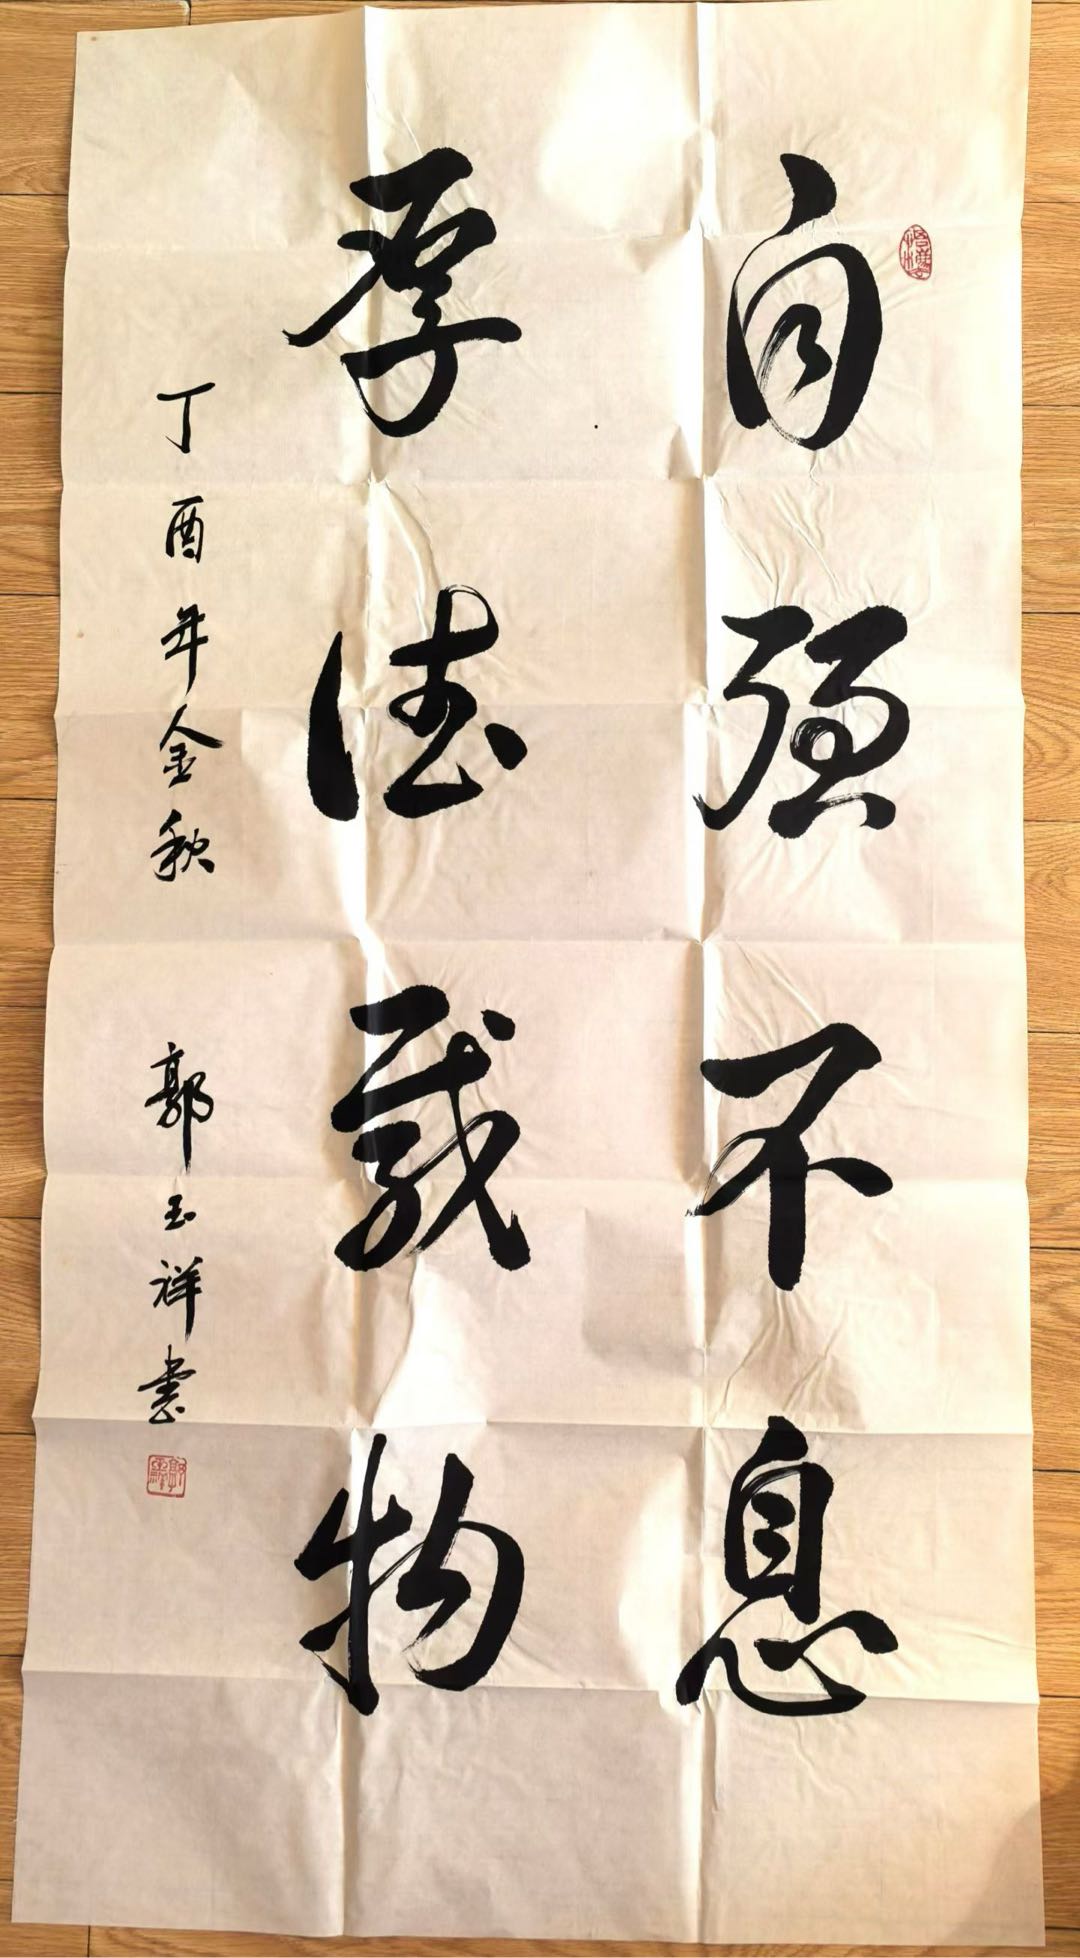 自强不息
厚德载物
丁酉年金秋
郭玉祥書